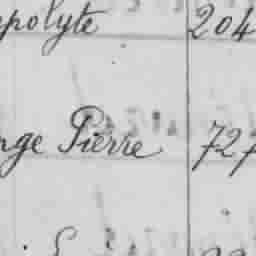 ppolyte 204
nge Pierre 727